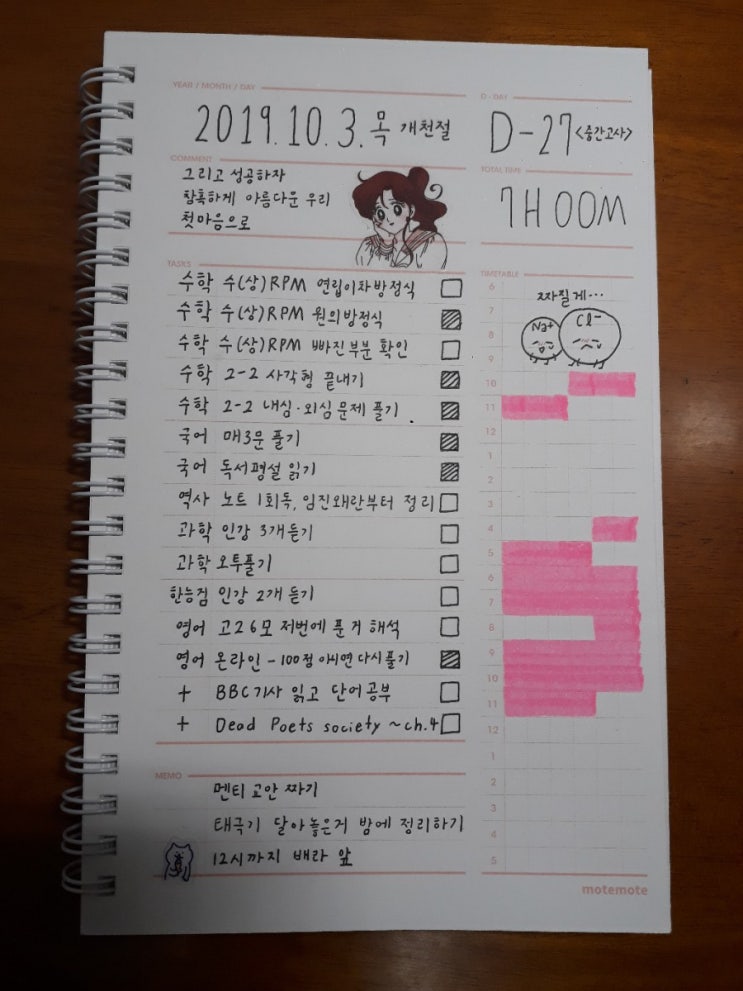 YEAR / MONTH / DAY
2019.10.3.목 개천절
D-DAY
D-27 <중간고사>
COMMENT
그리고 성공하자
참혹하게 아름다운 우리
첫마음으로
TOTAL TIME
7H 00M
TASKS
수학 수(상)RPM 연립이차방정식
수학 수(상)RPM 원의방정식
수학 수(상)RPM 빠진부분 확인
수학 2-2 사각형 끝내기
수학 2-2 내심·외심 문제 풀기
국어 매3문 풀기
국어 독서평설 읽기
역사 노트 1회독, 임진왜란부터 정리
과학 인강 3개듣기
과학 오투풀기
한능검 인강 2개 듣기
영어 고2 6모 저번에 푼거 해석
영어 온라인 - 100점 아니면 다시풀기
+ BBC기사 읽고 단어공부
+ Dead Poets society ~ch.4
TIMETABLE
짜질게...
Na+
Cl-
6
7
8
9
10
11
12
1
2
3
4
5
6
7
8
9
10
11
12
1
2
3
4
5
MEMO
멘티 교안 짜기
태극기 달아놓은거 밤에 정리하기
12시까지 배라 앞
motemote